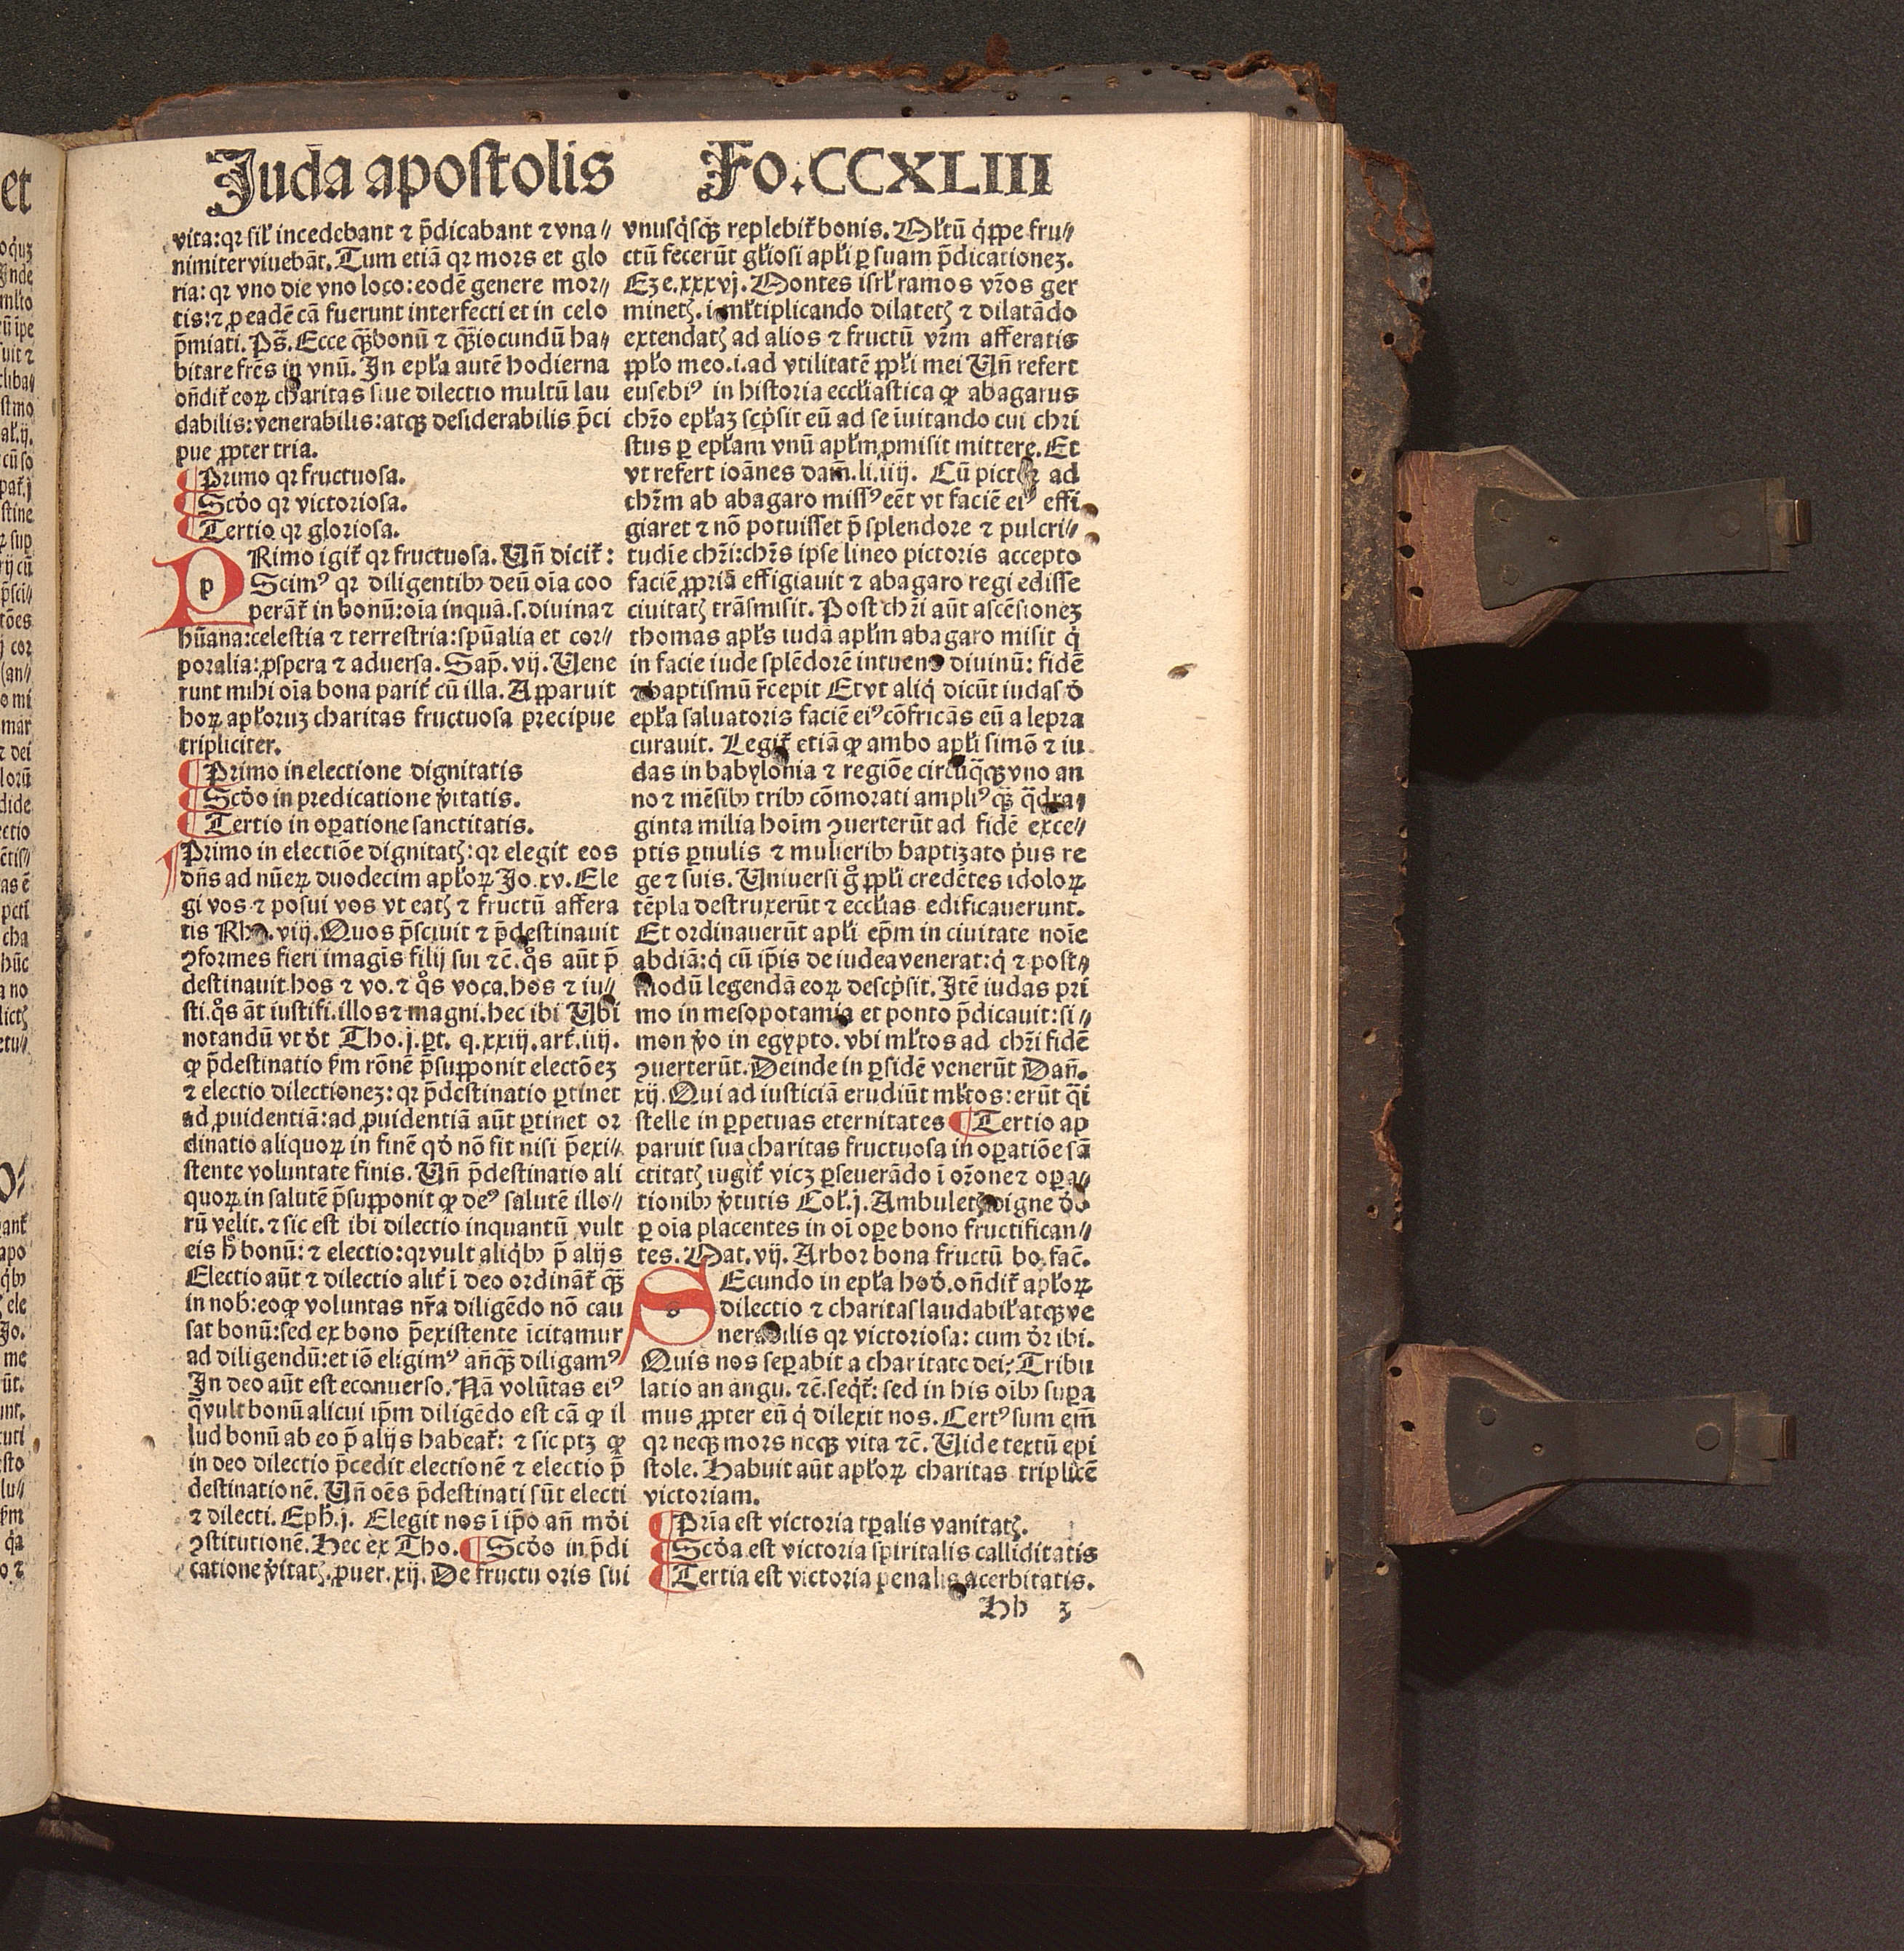 Juda apostolis Fo.CCXLIII
vita:qꝛ sił incedebant ⁊ p̄dicabant ⁊ vna⸗
nimiter viuebāt. Tum etiā qꝛ mors et glo
ria: qꝛ vno die vno loco: eodē genere mor⸗
tis:⁊ ꝓ eadē cā fuerunt interfecti et in celo
p̄miati. Ps̄. Ecce q̄ꝫ bonū ⁊ q̄ꝫ iocundū ha⸗
bitare frēs in vnū. In epła autē hodierna
oñdit̃ eoꝝ charitas siue dilectio multū lau
dabilis: venerabilis: atqꝫ desiderabilis p̄ci
pue ꝓpter tria.
Primo qꝛ fructuosa.
Scd̄o qꝛ victoriosa.
Tertio qꝛ gloriosa.
PRimo igit̃ qꝛ fructuosa. Vñ dicit̃:
Scimꝰ qꝛ diligentibꝫ deū oīa coo
perāt̃ in bonū: oīa inquā.s. diuina ⁊
hūana: celestia ⁊ terrestria: spūalia et cor⸗
poralia: ꝓspera ⁊ aduersa. Sap̄. vij. Uene
runt mihi oīa bona parit̃ cū illa. Apparuit
hoꝝ apłoruꝫ charitas fructuosa precipue
tripliciter.
Primo in electione dignitatis
Scd̄o in predicatione v̄itatis.
Tertio in oꝑatione sanctitatis.
Primo in electiōe dignitatꝭ: qꝛ elegit eos
dñs ad nūeꝝ duodecim apłoꝝ Jo. xv. Ele
gi vos ⁊ posui vos vt eatꝭ ⁊ fructū affera
tis Rho. viij. Quos p̄sciuit ⁊ p̄destinauit
ꝯformes fieri imagīs filij sui ⁊c̄. q̊s aūt p̄
destinauit hos ⁊ vo. ⁊ q̊s voca. hos ⁊ iu⸗
sti. q̊s āt iustifi. illos ⁊ magni. hec ibi Ubi
notandū vt d̄t Tho. j. ꝑt. q. xxiij. art̃. iiij.
ꝙ p̄destinatio s̄m rōnē p̄supponit electōeꝫ
⁊ electio dilectioneꝫ: qꝛ p̄destinatio ꝑtinet
ad ꝓuidentiā: ad ꝓuidentiā aūt ꝑtinet or
dinatio aliquoꝝ in finē qd̄ nō fit nisi p̄exi⸗
stente voluntate finis. Vñ p̄destinatio ali
quoꝝ in salutē p̄supponit ꝙ deꝰ salutē illo⸗
rū velit. ⁊ sic est ibi dilectio inquantū vult
eis h̊ bonū: ⁊ electio: qꝛ vult aliq̇bꝫ p̄ alijs
Electio aūt ⁊ dilectio alit̃ ī deo ordināt̃ q̄ꝫ
in nob̄: eoꝙ voluntas nr̃a diligēdo nō cau
sat bonū: sed ex bono p̄existente īcitamur
ad diligendū: et iō eligimꝰ añq̄ꝫ diligamꝰ
In deo aūt est econuerso. Nā volūtas eiꝰ
q̄ vult bonū alicui ip̄m diligēdo est cā ꝙ il
lud bonū ab eo p̄ alijs habeat̃: ⁊ sic ptꝫ ꝙ
in deo dilectio p̄cedit electionē ⁊ electio p̄
destinationē. Vñ oēs p̄destinati sūt electi
⁊ dilecti. Eph̄. j. Elegit nos ī ip̄o añ mūdi
ꝯstitutionē. Hec ex Tho. Scd̄o in p̄di
catione v̄itatꝭ. ꝓuer. xij. De fructu oris sui
vnusq̇sqꝫ replebit̃ bonis. Mł̃tū q̇ppe fru⸗
ctū fecerūt głiosi apłi ꝑ suam p̄dicationeꝫ.
Eze. xxxvj. Montes isrł ramos vr̃os ger
minetꝭ. i. mł̃tiplicando dilatetꝭ ⁊ dilatādo
extendatꝭ ad alios ⁊ fructū vr̃m afferatis
ppło meo. i. ad vtilitatē ppłi mei Vñ refert
eusebiꝰ in historia eccłiastica ꝙ abagarus
chr̃o epłaꝫ scp̊sit eū ad se īuitando cui chri
stus ꝑ epłam vnū apłm ꝓmisit mittere. Et
vt refert ioānes dam̄. li. iiij. Cū pictor ad
chr̃m ab abagaro missꝰ eēt vt faciē eiꝰ effi
giaret ⁊ nō potuisset p̄ splendore ⁊ pulcri⸗
tudīe chr̃i: chr̃s ipse lineo pictoris accepto
faciē ꝓpriā effigiauit ⁊ abagaro regi edisse
ciuitatꝭ trāsmisit. Post chr̃i aūt ascēsioneꝫ
thomas apłs iudā apłm abagaro misit q̇
in facie iude splēdorē intuens diuinū: fidē
⁊ baptismū r̄cepit Et vt aliq̇ dicūt iudas d̄
epła saluatoris faciē eiꝰ cōfricās eū a lepra
curauit. Legit̃ etiā ꝙ ambo apłi simō ⁊ iu
das in babylonia ⁊ regiōe circūq̄qꝫ vno an
no ⁊ mēsibꝫ tribꝫ cōmorati ampliꝰ q̄ꝫ q̄dra⸗
ginta milia hoīm ꝯuerterūt ad fidē exce⸗
ptis ꝑuulis ⁊ mulieribꝫ baptizato p̊us re
ge ⁊ suis. Uniuersi g̊ ppłi credētes idoloꝝ
tēpla destruxerūt ⁊ eccłias edificauerunt.
Et ordinauerūt apłi ep̄m in ciuitate noīe
abdiā: q̇ cū ip̄is de iudea venerat: q̇ ⁊ post⸗
modū legendā eoꝝ descp̊sit. Itē iudas pri
mo in mesopotamia et ponto p̄dicauit: si⸗
mon v̄o in egypto. vbi mł̃tos ad chr̃i fidē
ꝯuerterūt. Deinde in ꝑsidē venerūt Dañ.
xij. Qui ad iusticiā erudiūt mł̃tos: erūt q̄si
stelle in ꝑpetuas eternitates Tertio ap
paruit sua charitas fructuosa in oꝑatiōe sā
ctitatꝭ iugit̃ vicꝫ ꝑseuerādo ī or̃one ⁊ oꝑa⸗
tionibꝫ v̄tutis Col̃. j. Ambuletꝭ digne d̄o
ꝑ oīa placentes in oī oꝑe bono fructifican⸗
tes. Mat. vij. Arbor bona fructū bo. fac̄.
SEcundo in epła hod̄. oñdit̃ apłoꝝ
dilectio ⁊ charitas laudabił atqꝫ ve
nerabilis qꝛ victoriosa: cum d̄r ibi.
Quis nos seꝑabit a charitate dei? Tribu
latio an angu. ⁊c̄. seq̇t̃: sed in his oībꝫ suꝑa
mus ꝓpter eū q̇ dilexit nos. Certꝰ sum em̄
qꝛ neqꝫ mors neqꝫ vita ⁊c̄. Uide textū epi
stole. Habuit aūt apłoꝝ charitas triplicē
victoriam.
Prīa est victoria tꝑalis vanitatꝭ.
Scd̄a est victoria spiritalis calliditatis
Tertia est victoria penalis acerbitatis.
Hh 3